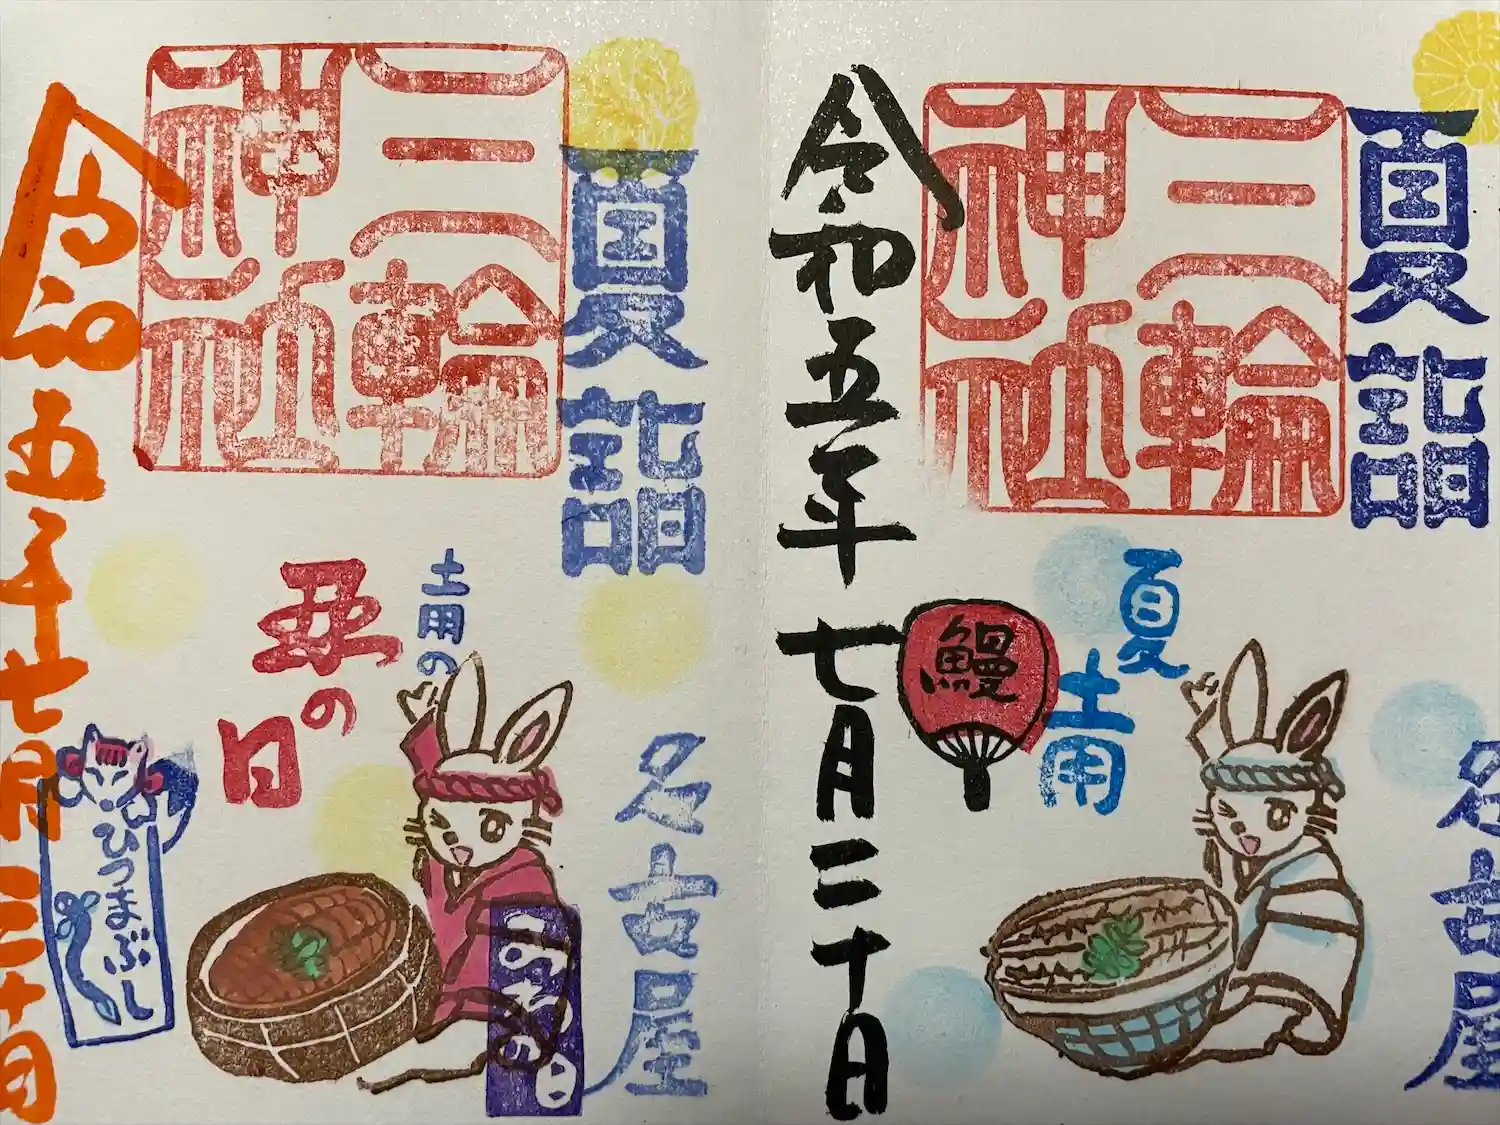 夏詣
名古屋
三輪
神社
夏
土用
鰻
令和五年七月三十日
夏詣
名古屋
三輪
神社
土用の
丑の
日
ひつまぶし
令和五年七月三十日